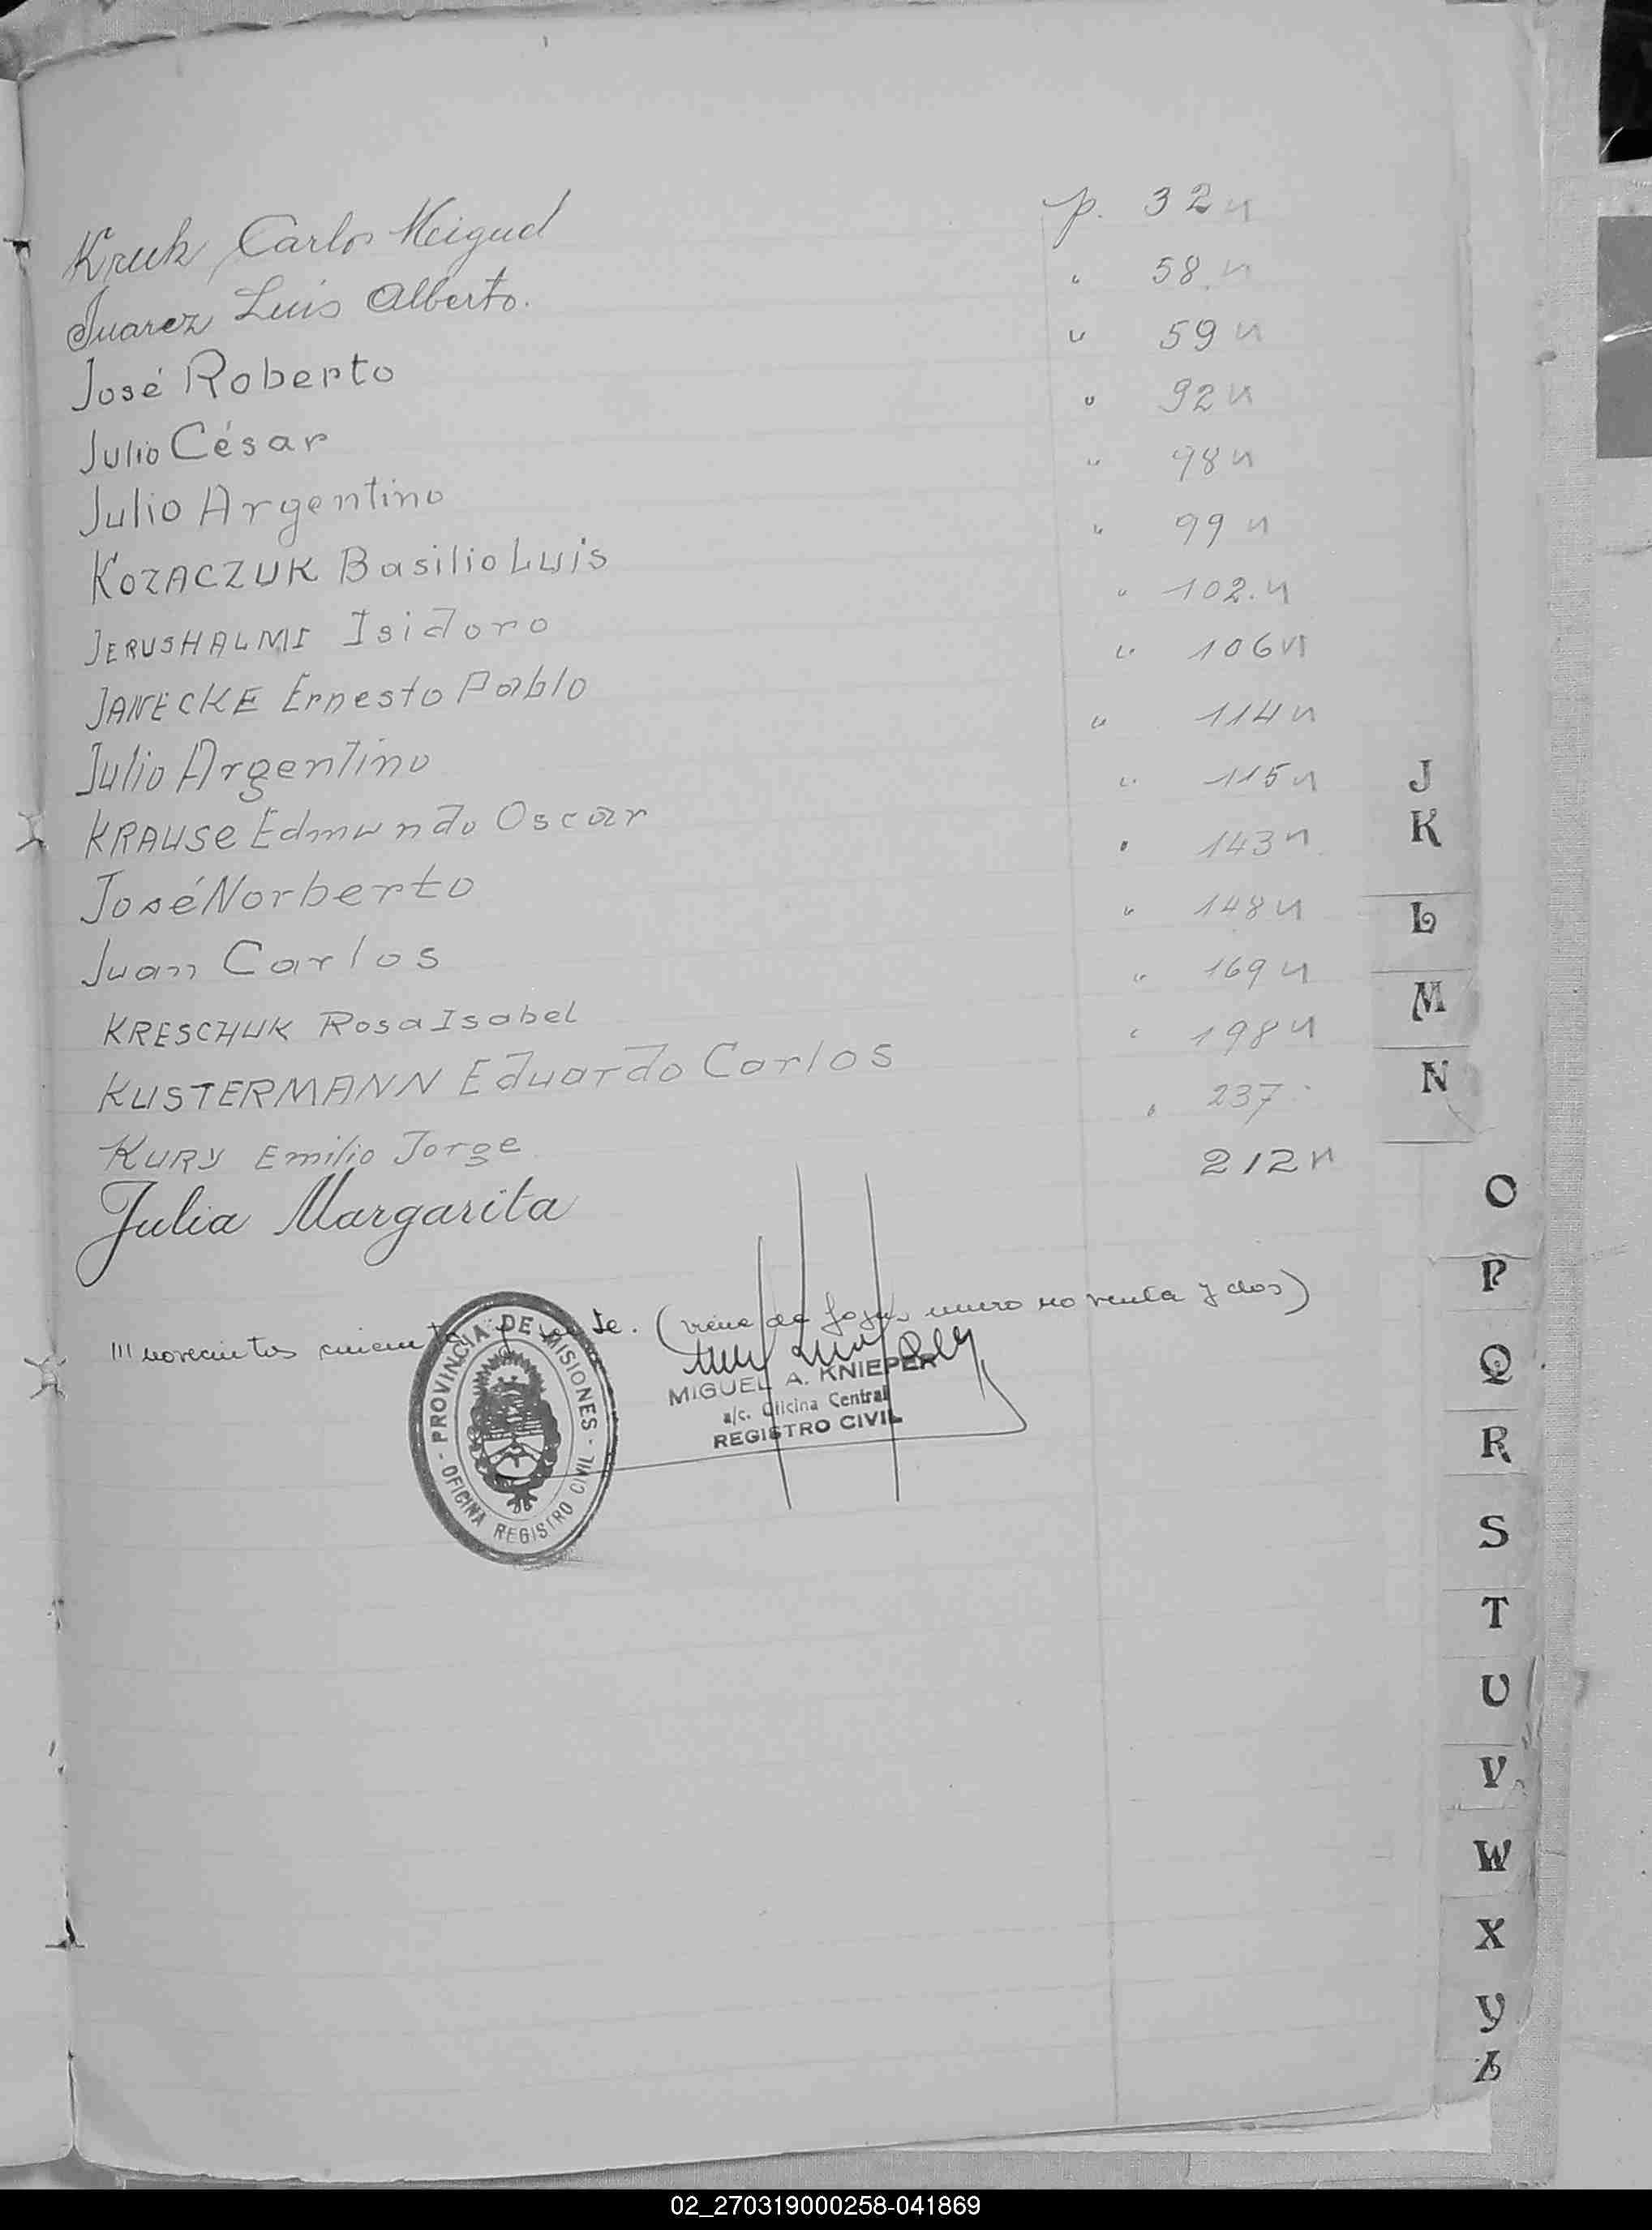 Kruk Carlos Miguel p. 32 N
Juarez Luis Alberto. " 58. N
José Roberto " 59 N
Julio César " 92 N
Julio Argentino " 98 N
KOZACZUK Basilio Luis " 99 N
JERUSHALMI Isidoro " 102. N
JANECKE Ernesto Pablo " 106 N
Julio Argentino " 114 N
KRAUSE Edmundo Oscar " 115 N
José Norberto " 143 N
Juan Carlos " 148 N
KRESCHUK Rosa Isabel " 169 N
KUSTERMANN Eduardo Carlos " 198 N
KURY Emilio Jorge " 237
Julia Margarita 212 N
/// novecientos cincuenta y siete. (viene de fojas uno noventa y dos)
PROVINCIA DE MISIONES
- OFICINA REGISTRO CIVIL -
MIGUEL A. KNIEPER
a/c. Oficina Central
REGISTRO CIVIL
J
K
L
M
N
O
P
Q
R
S
T
U
V
W
X
Y
Z
02_270319000258-041869